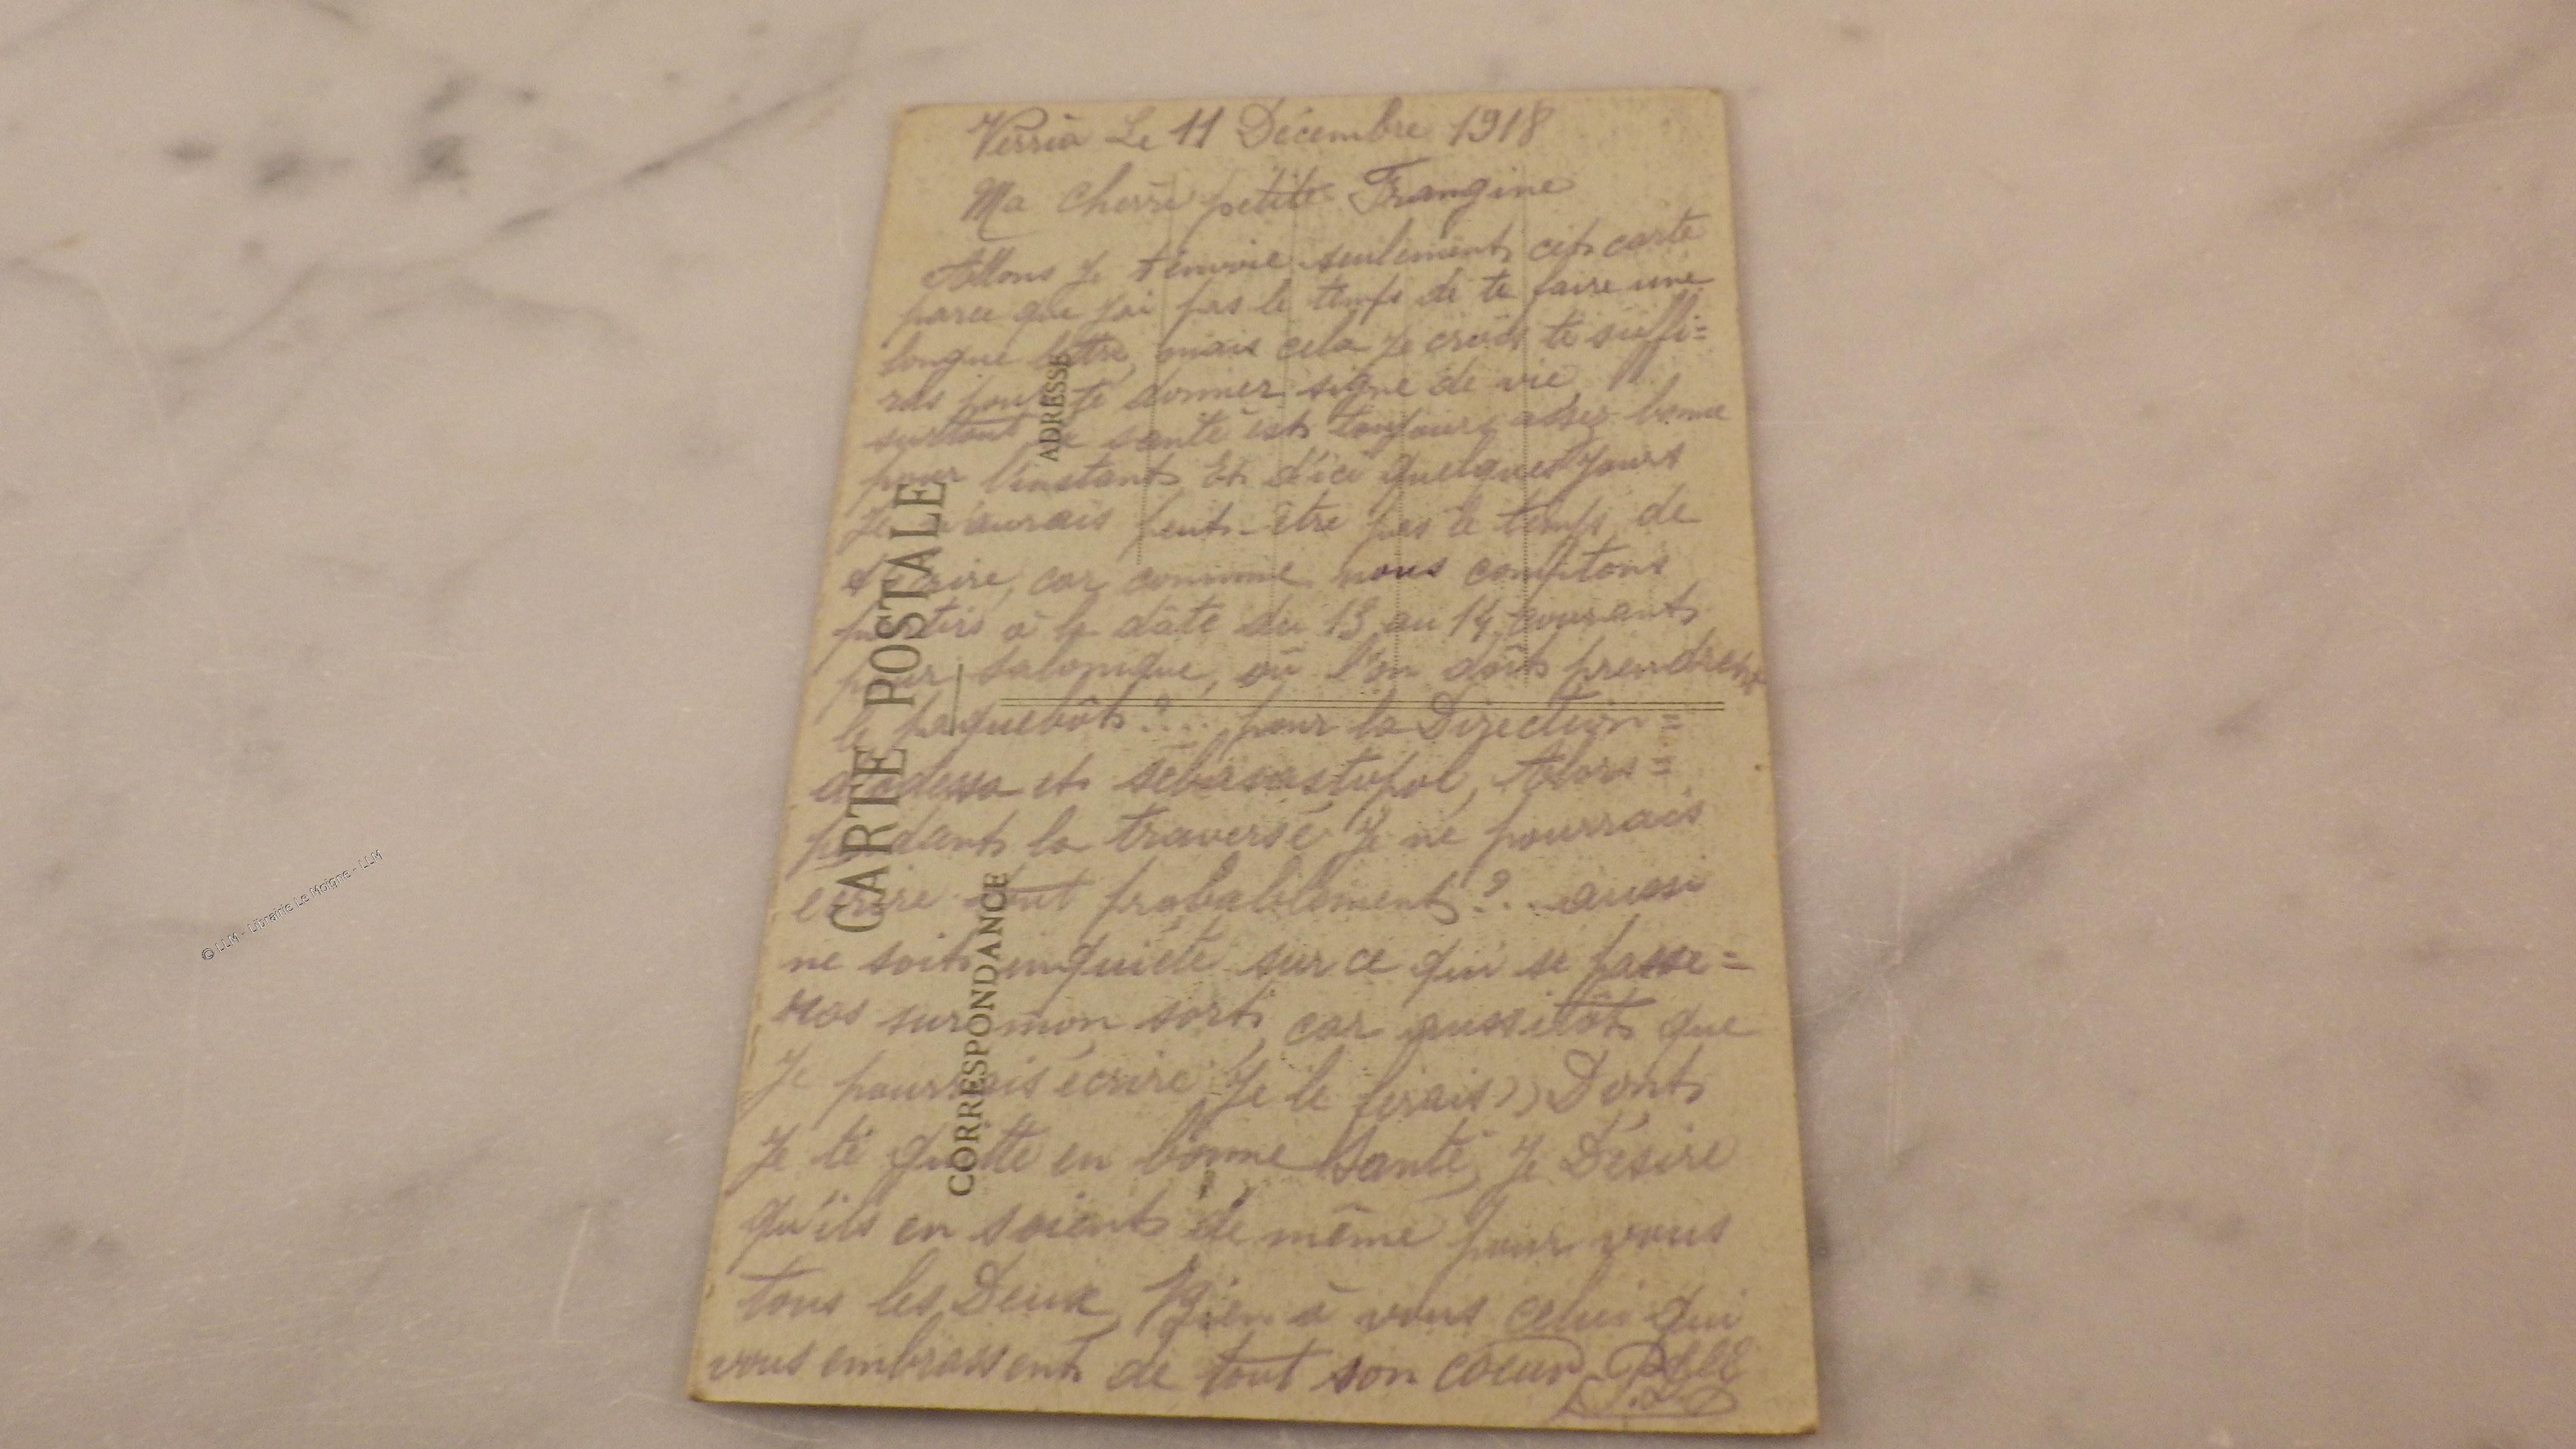 Verria Le 11 Décembre 1918
Ma Cherri petite Frangine
Allons Je t'envoie seulement cet carte
parce que j'ai pas le temps de te faire une
longue lettre, mais cela Je crois te suffi=
ras pour te donner signe de vie,
surtout santé est toujours assez bonne
pour l'instant Et d'ici quelques Jours
Je n'aurais peut-être pas le temps de
t'écrire, car comme nous comptons
partirs à la date du 13 au 14 courant
pour Salonique, où l'on doit prendre
le paquebôt ?... pour la Direction =
d'odessa et sébasastopol, Alors =
pendant la traversé Je ne pourrais
écrire tout probablement ?... aussi
ne soit inquiète sur ce qui se passe=
ras sur mon sort, car aussitôt que
Je pourrais écrire Je le ferais)) Dont
Je te quitte en bonne Santé, Je Désire
qu'ils en soient de même pour vous
tous les Deux, Bien à vous celui qui
vous embrassent de tout son coeur
CARTE POSTALE
CORRESPONDANCE
ADRESSE
© LLM - Librairie Le Moigne - LLM